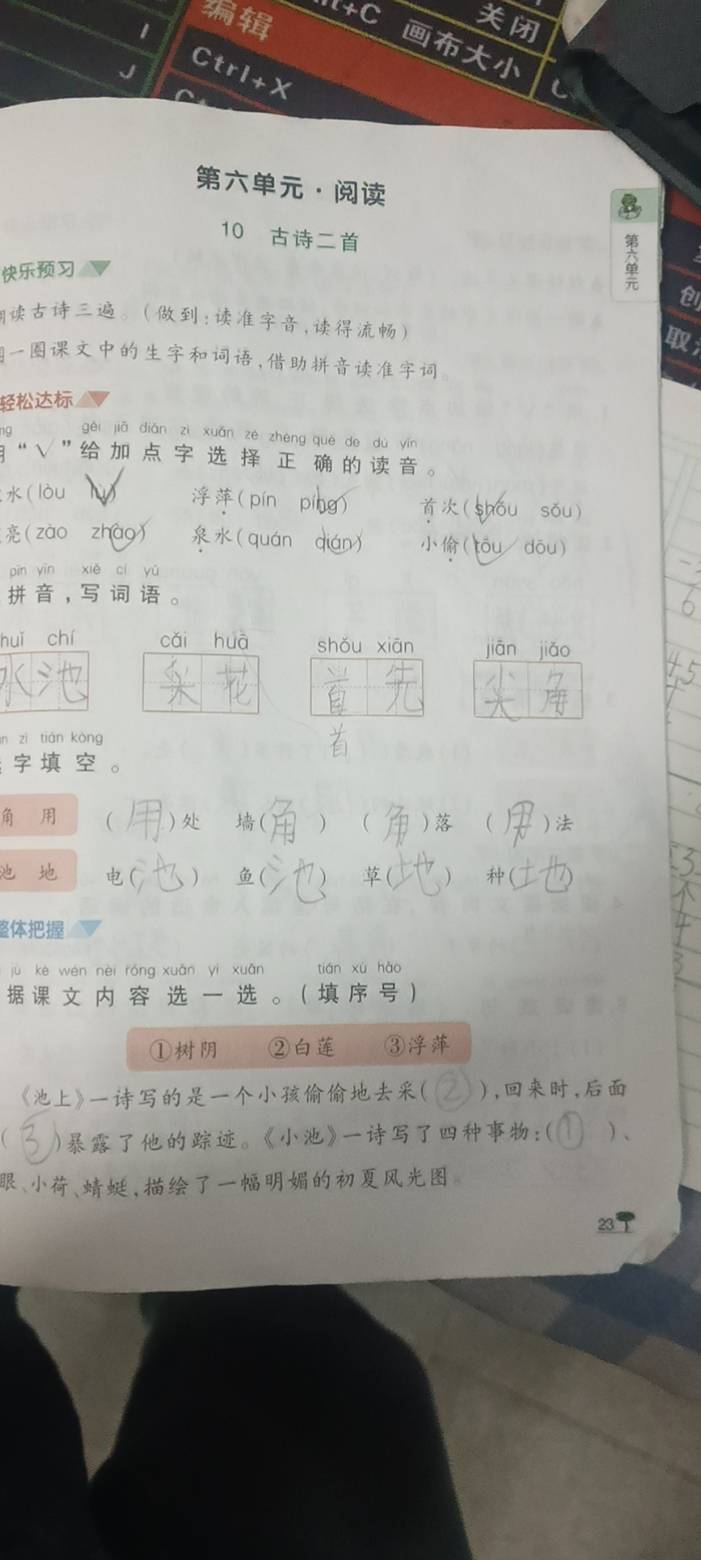 编辑
Ctrl+C
关闭
Ctrl+X
画布大小
I
J
第六单元·阅读
10 古诗二首
第六单元
快乐预习
读古诗三遍。(做到:读准字音,读得流畅)
一圈课文中的生字和词语,借助拼音读准字词。
轻松达标
gěi jiā diǎn zì xuǎn zé zhèng què de dú yīn
“√”给加点字选择正确的读音。
水(lòu lù) 浮萍(pín píng) 首次(shǒu sǒu)
亮(zào zhào) 泉水(quán qián) 小偷(tōu dōu)
pīn yīn xiě cí yǔ
拼音,写词语。
huǐ chí cǎi huā shǒu xiān jiān jiǎo
水池 采花 首先 尖角
首
zì tián kòng
字填空。
角 用 (用)处 墙(角) (角)落 (用)法
池 地 电(池) 鱼(池) 草(地) 种(地)
整体把握
jù kè wén nèi róng xuǎn yi xuǎn tián xù hào
据课文内容选一选。(填序号)
①树阴 ②白莲 ③浮萍
《池上》一诗写的是一个小孩偷偷地去采(②),回来时,后面
(3)暴露了他的踪迹。《小池》一诗写了四种事物:(①)、
眼、小荷、蜻蜓,描绘了一幅明媚的初夏风光图。
23